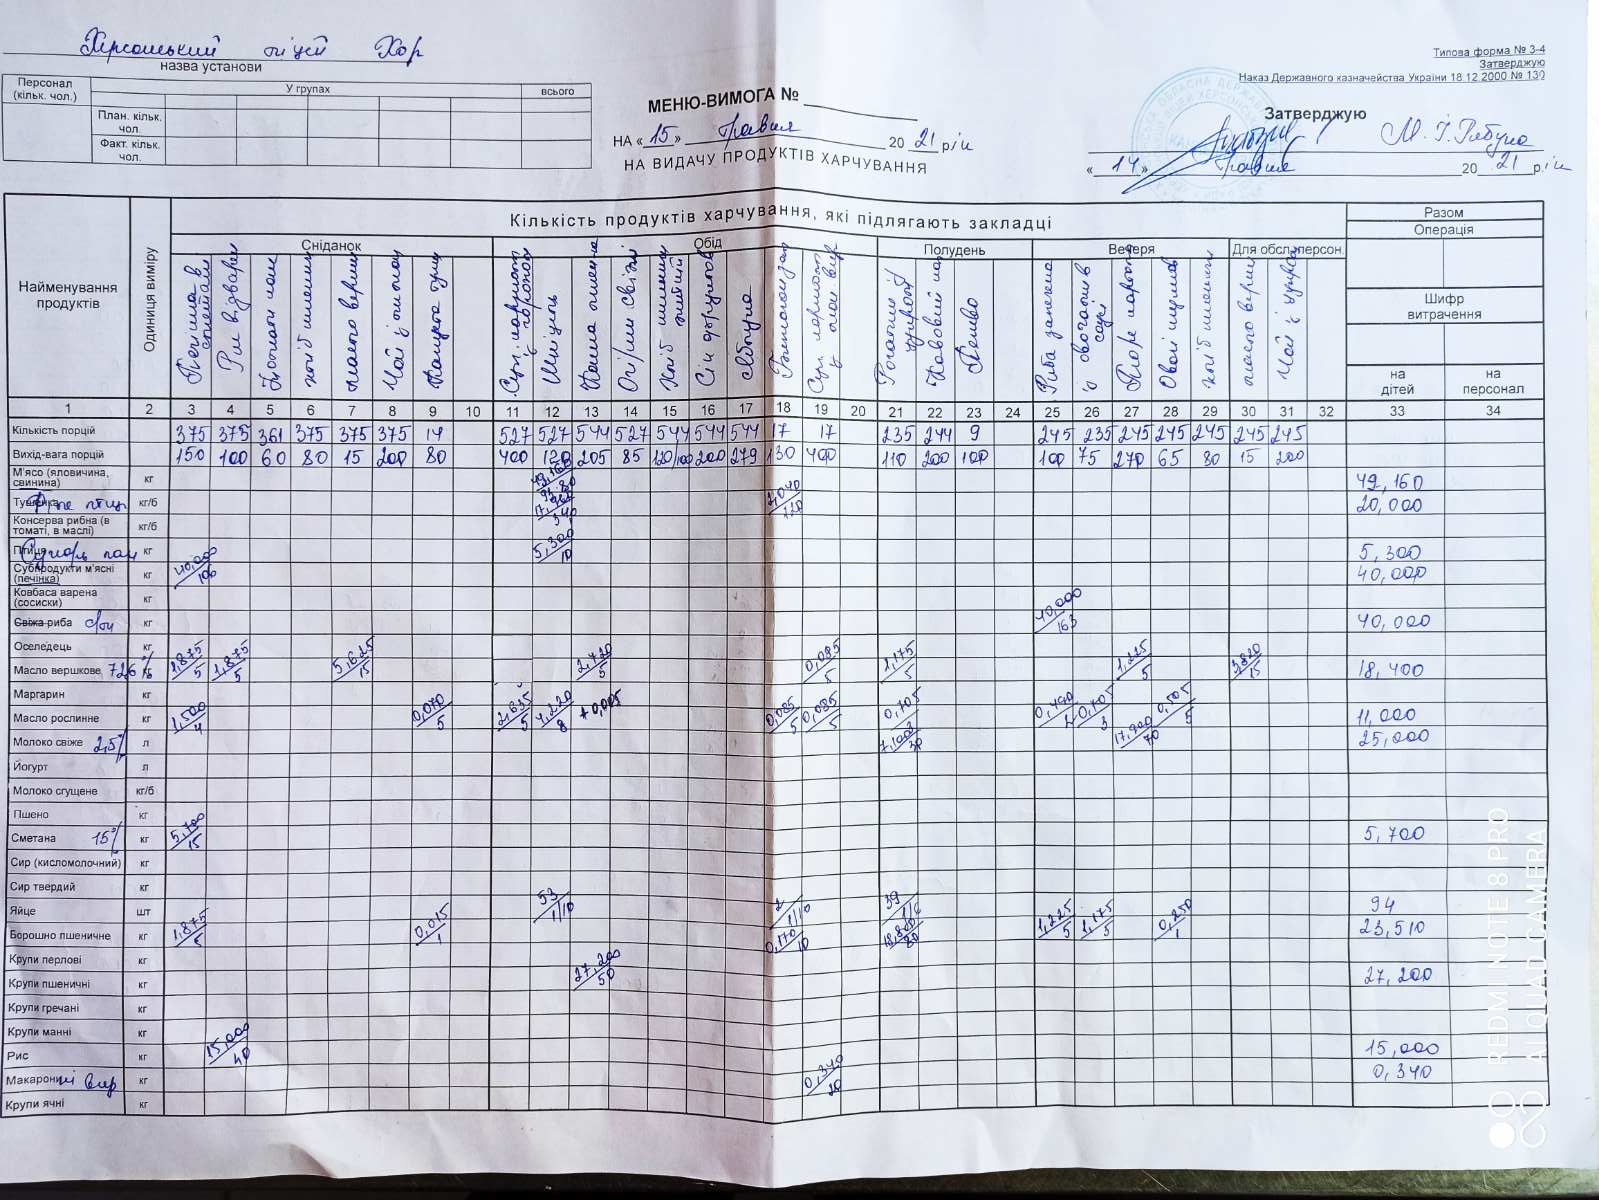 Херсонський ліцей ХОР
назва установи
Типова форма № З-4
Затверджую
Наказ Державного казначейства України 18.12.2000 № 130
Персонал (кільк. чол.)
У групах
всього
План. кільк. чол.
Факт. кільк. чол.
МЕНЮ-ВИМОГА №
НА «15» травня 2021 рік
НА ВИДАЧУ ПРОДУКТІВ ХАРЧУВАННЯ
Затверджую
«14» травня 2021 рік
Найменування продуктів
Одиниця виміру
Кількість продуктів харчування, які підлягають закладці
Разом
Операція
Сніданок Обід Полудень Вечеря Для обсл. персон.
Шифр витрачення
на дітей
на персонал
1 2 3 4 5 6 7 8 9 10 11 12 13 14 15 16 17 18 19 20 21 22 23 24 25 26 27 28 29 30 31 32 33 34
Кількість порцій 375 375 361 375 375 375 14 527 527 544 527 544 544 544 17 17 235 244 9 245 235 245 245 245 245 245
Вихід-вага порцій 150 100 60 80 15 200 80 400 120 205 85 120/100 200 279 130 400 110 200 100 100 75 270 65 80 15 200
М'ясо (яловичина, свинина) кг 49,160
Тушенка кг/б 20,000
Консерва рибна (в томаті, в маслі) кг/б
Птиця кг 5,300/10 5,300
Субпродукти м'ясні (печінка) кг 40,000/106 40,000
Ковбаса варена (сосиски) кг
Свіжа риба с/м кг 40,000/163 40,000
Оселедець кг
Масло вершкове 72,6% кг 1,875/5 1,875/5 5,625/15 2,720/5 0,085/5 1,175/5 1,225/5 18,400
Маргарин кг
Масло рослинне кг 1,500/4 0,070/5 2,635/5 4,220/8 +0,005 0,085/5 0,085/5 0,705 0,490/2 0,705/3 11,000
Молоко свіже 2,5% л 25,000
Йогурт л
Молоко сгущене кг/б
Пшено кг
Сметана 15% кг 5,700/15 5,700
Сир (кисломолочний) кг
Сир твердий кг
Яйце шт 53 1/10 2 1/10 39 1/6 94
Борошно пшеничне кг 1,875/5 0,015/1 0,170/10 18,800/80 1,225/5 1,175/5 0,250/1 23,510
Крупи перлові кг
Крупи пшеничні кг 27,200/50 27,200
Крупи гречані кг
Крупи манні кг
Рис кг 15,000/40 15,000
Макаронні вир кг 0,340/20 0,340
Крупи ячні кг
REDMI NOTE 8 PRO
AI QUAD CAMERA